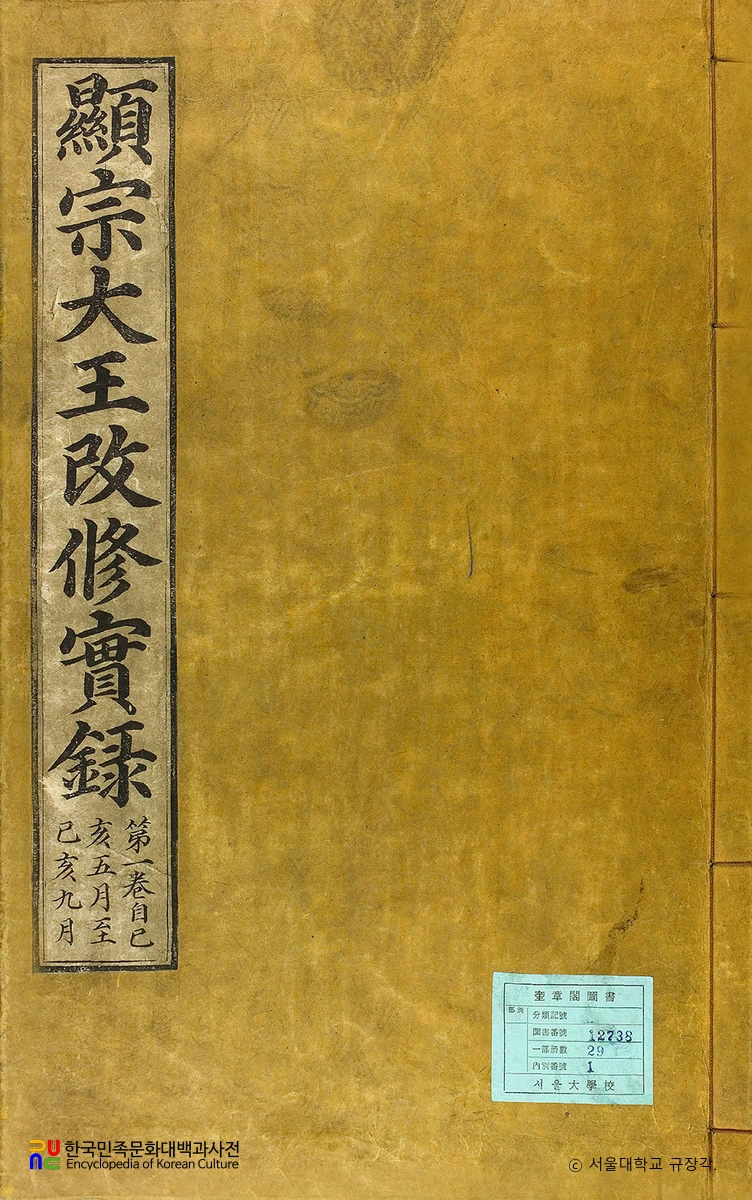 顯宗大王改修實錄
第一卷自己
亥五月至
己亥九月
奎章閣圖書
部別
分類記號
圖書番號 12738
一部冊數 29
內別番號 1
서울大學校
한국민족문화대백과사전
Encyclopedia of Korean Culture
© 서울대학교 규장각.